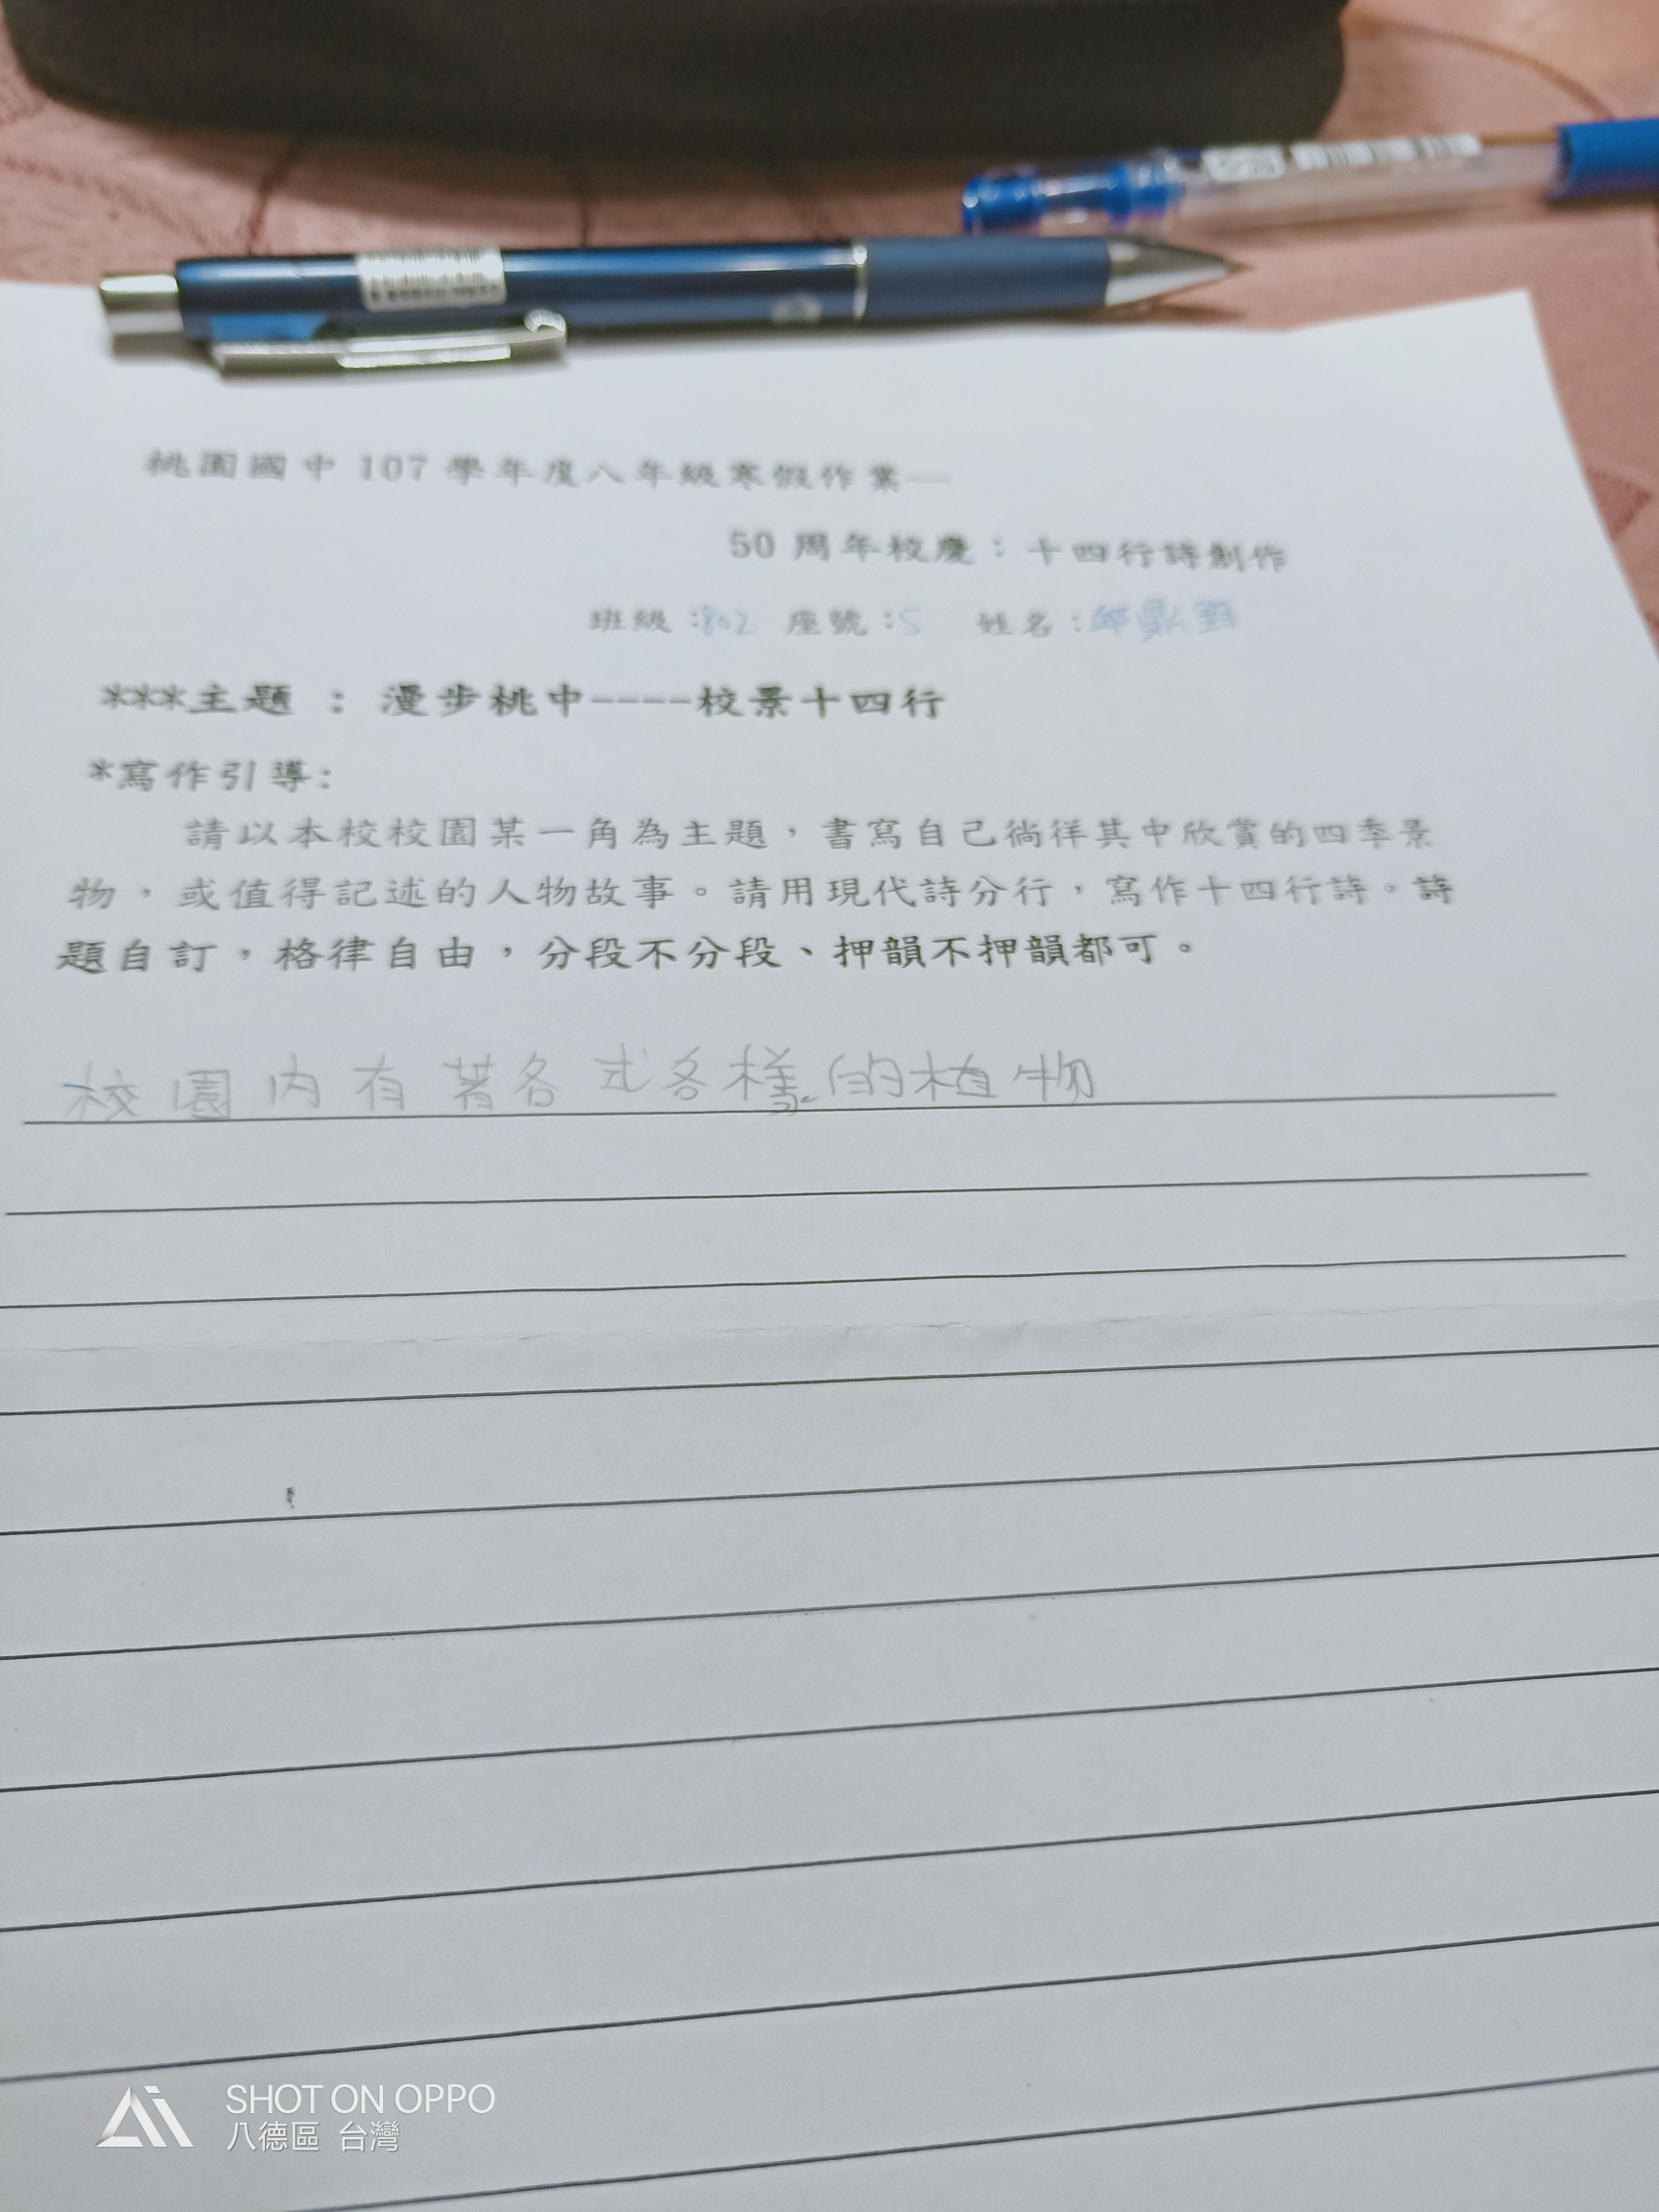 桃園國中 107 學年度八年級寒假作業—
50 周年校慶：十四行詩創作
班級：802 座號：5 姓名：邱鼎
***主題 ： 漫步桃中----校景十四行
*寫作引導:
請以本校校園某一角為主題，書寫自己徜徉其中欣賞的四季景
物，或值得記述的人物故事。請用現代詩分行，寫作十四行詩。詩
題自訂，格律自由，分段不分段、押韻不押韻都可。
校園內有著各式各樣的植物
SHOT ON OPPO
八德區 台灣